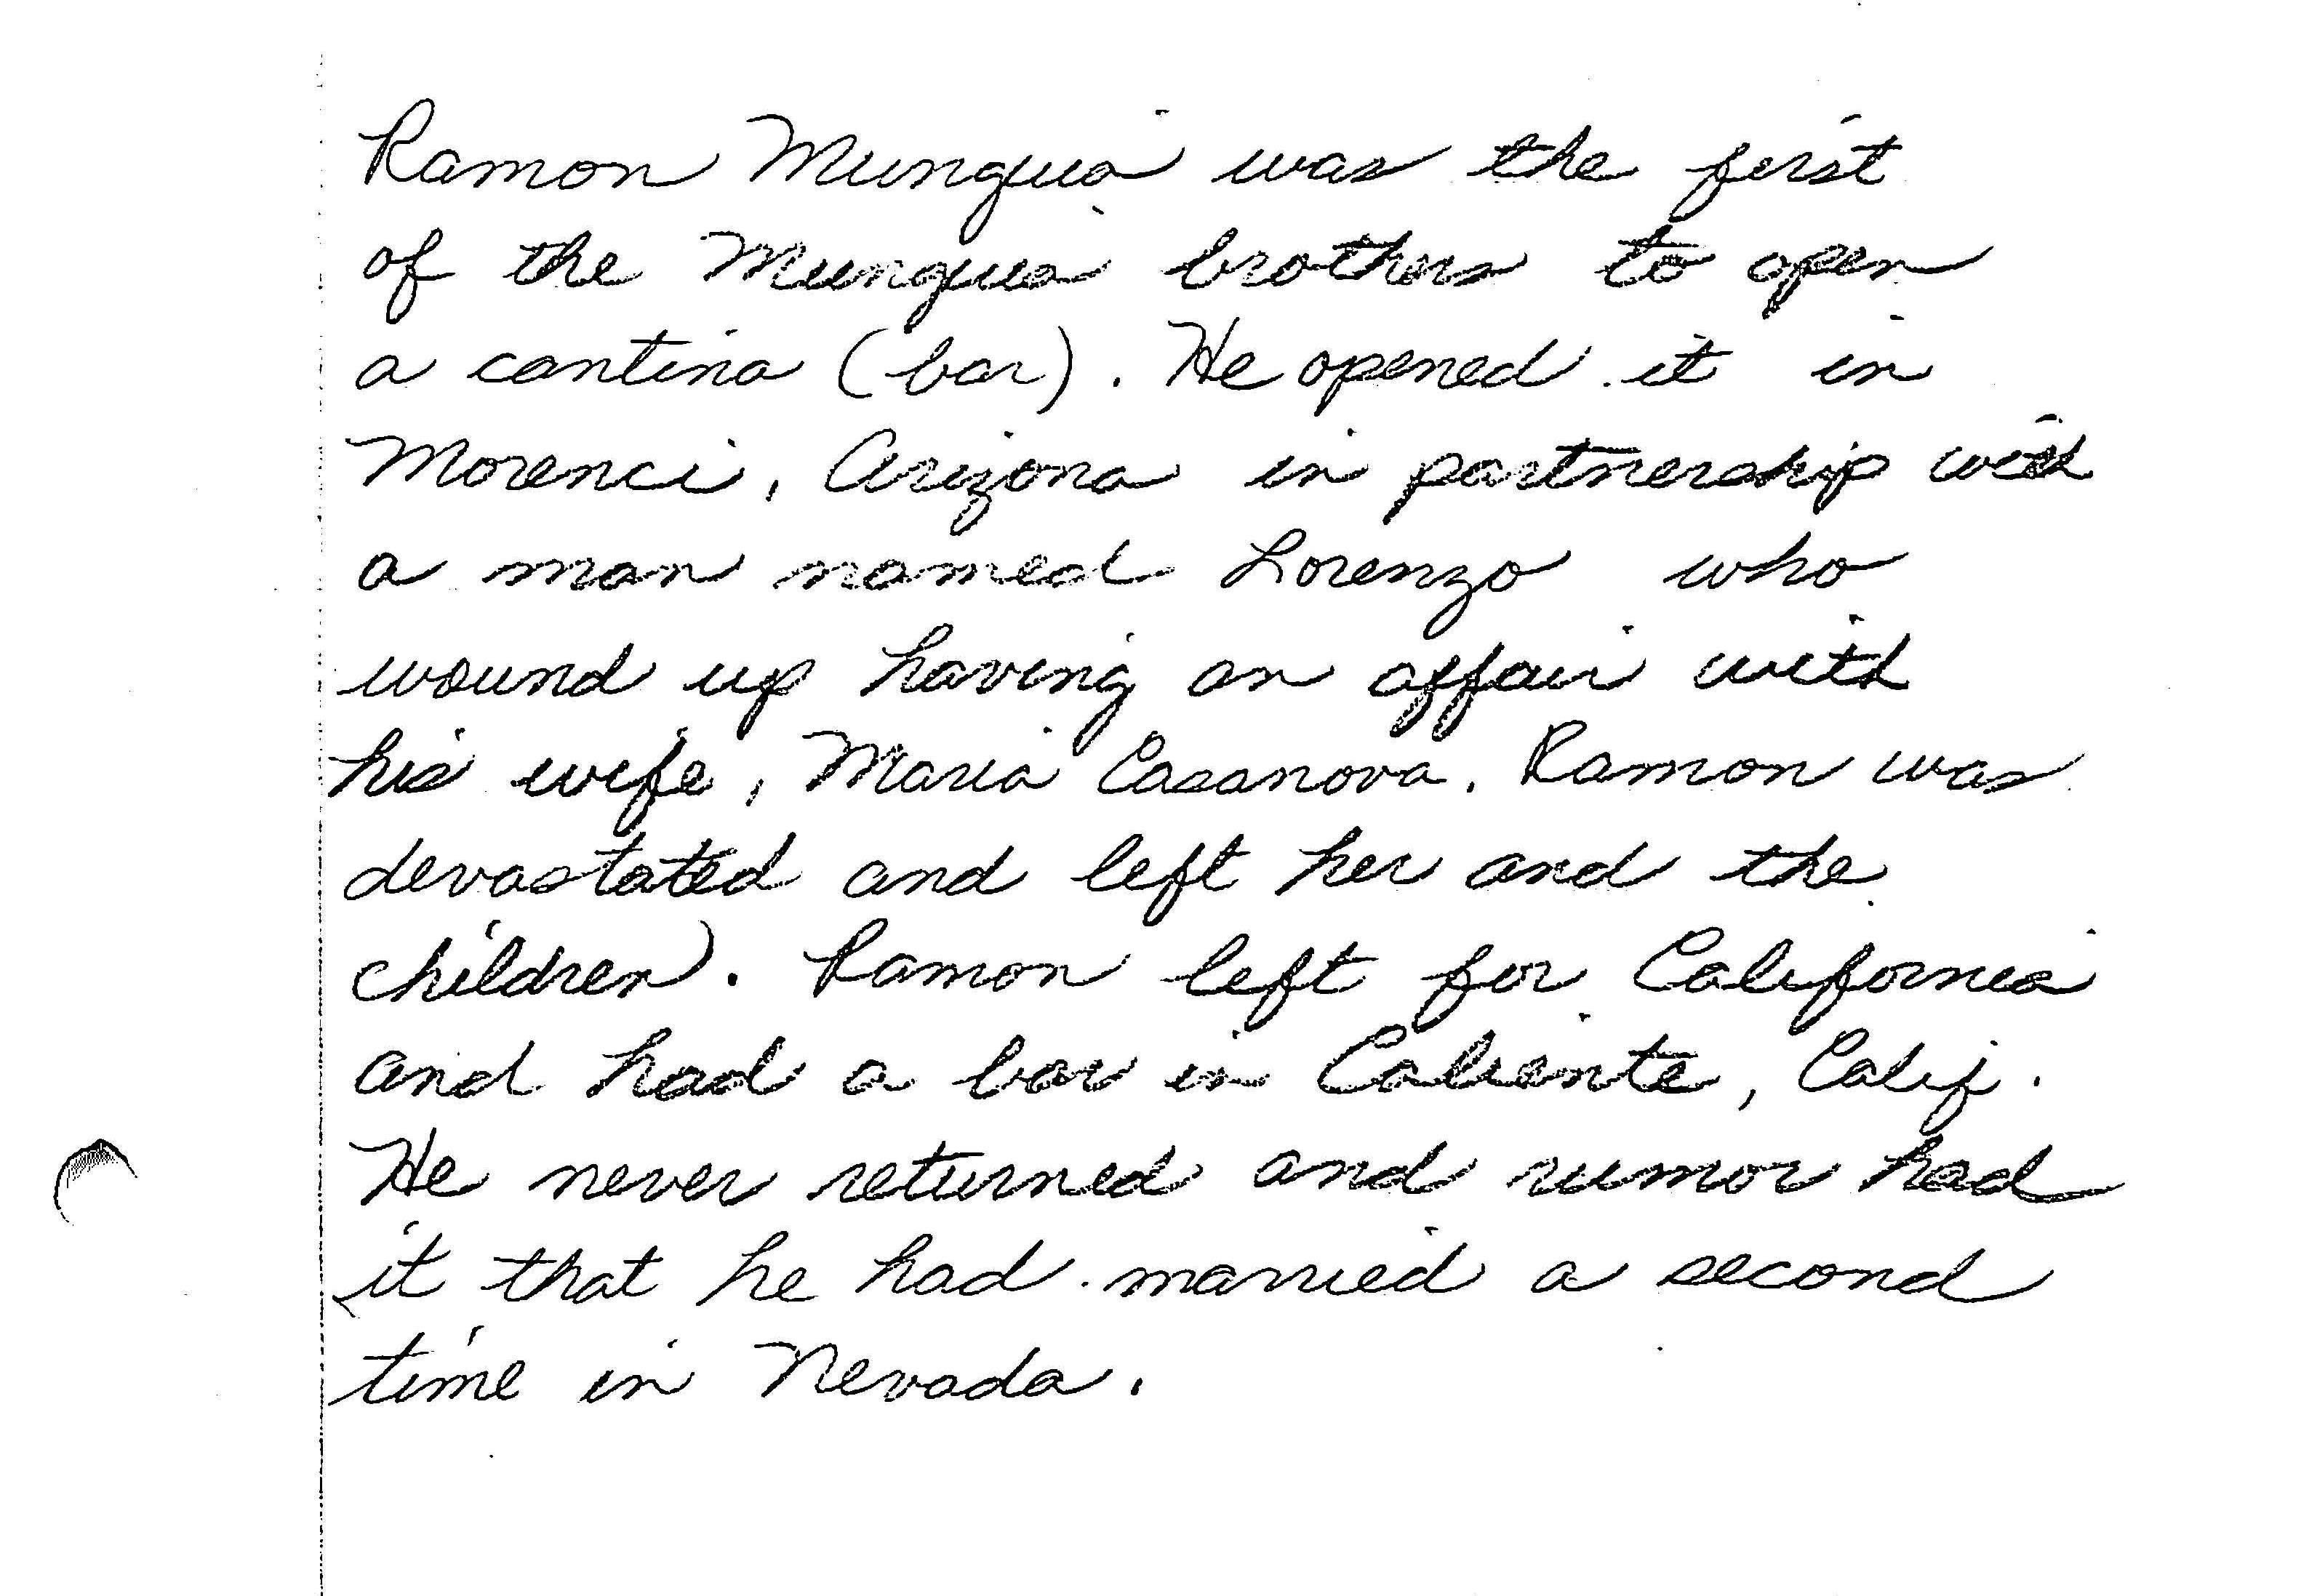 Ramon Munguia was the first
of the Munguia brothers to open
a cantina (bar). He opened it in
Morenci, Arizona in partnership with
a man named Lorenzo who
wound up having an affair with
his wife, Maria Casanova. Ramon was
devastated and left her and the
children. Ramon left for California
and had a bar in Caliente, Calif.
He never returned and rumor had
it that he had married a second
time in Nevada.